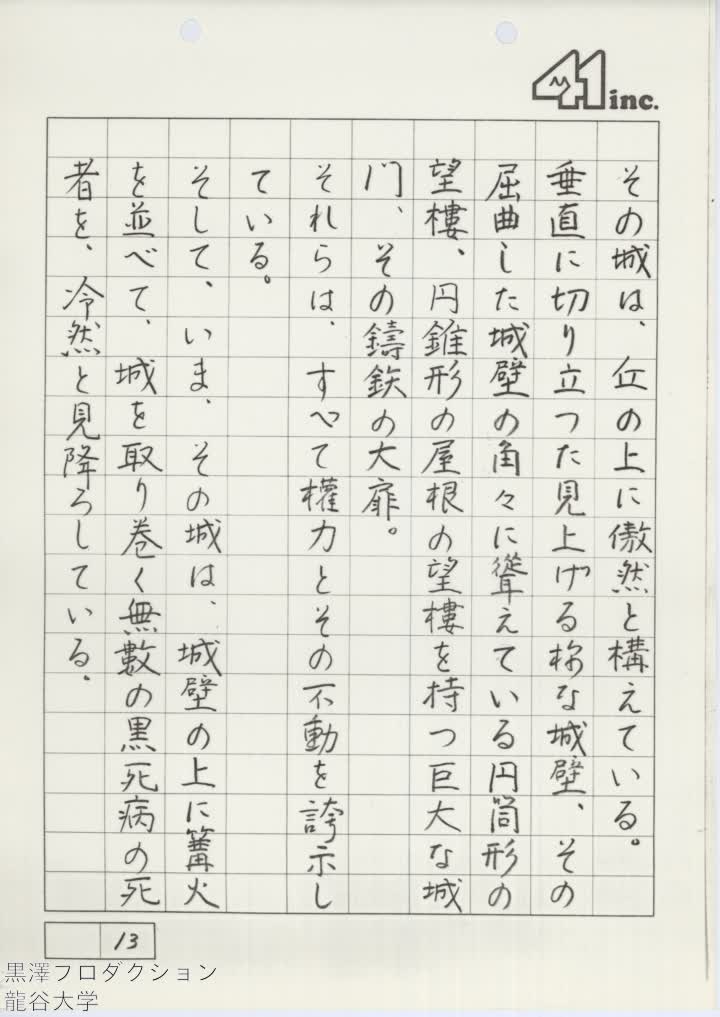 41 inc.
その城は、丘の上に傲然と構えている。
垂直に切り立つた見上げる様な城壁、その
屈曲した城壁の角々に聳えている円筒形の
望樓、円錐形の屋根の望樓を持つ巨大な城
門、その鑄鉄の大扉。
それらは、すべて權力とその不動を誇示し
ている。
そして、いま、その城は、城壁の上に篝火
を並べて、城を取り巻く無數の黒死病の死
者を、冷然と見降ろしている。
13
黒澤フロダクション
龍谷大学